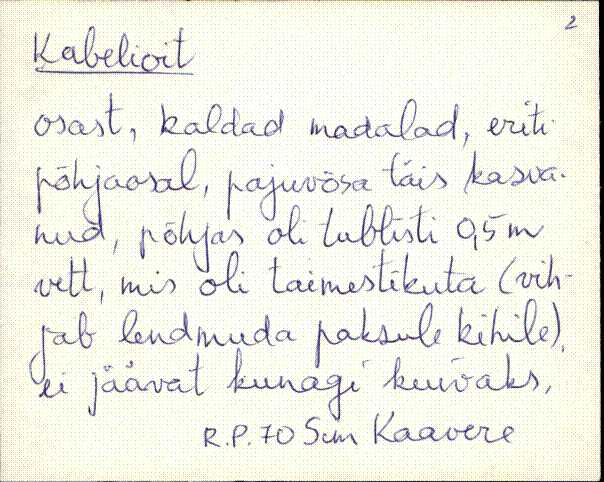 2
Kabelioit
osast, kaldad madalad, eriti
põhjaosal, pajuvõsa täis kasva-
nud, põhjas oli tublisti 0,5 m
vett, mis oli taimestikuta (vih-
jab lendmuda paksule kihile),
ei jäävat kunagi kuivaks,
R.P. 70 Sim Kaavere